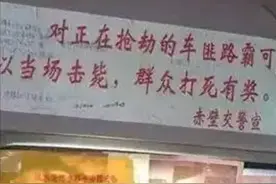 对正在抢劫的车匪路霸可
以当场击毙，群众打死有奖。
赤壁交警宣